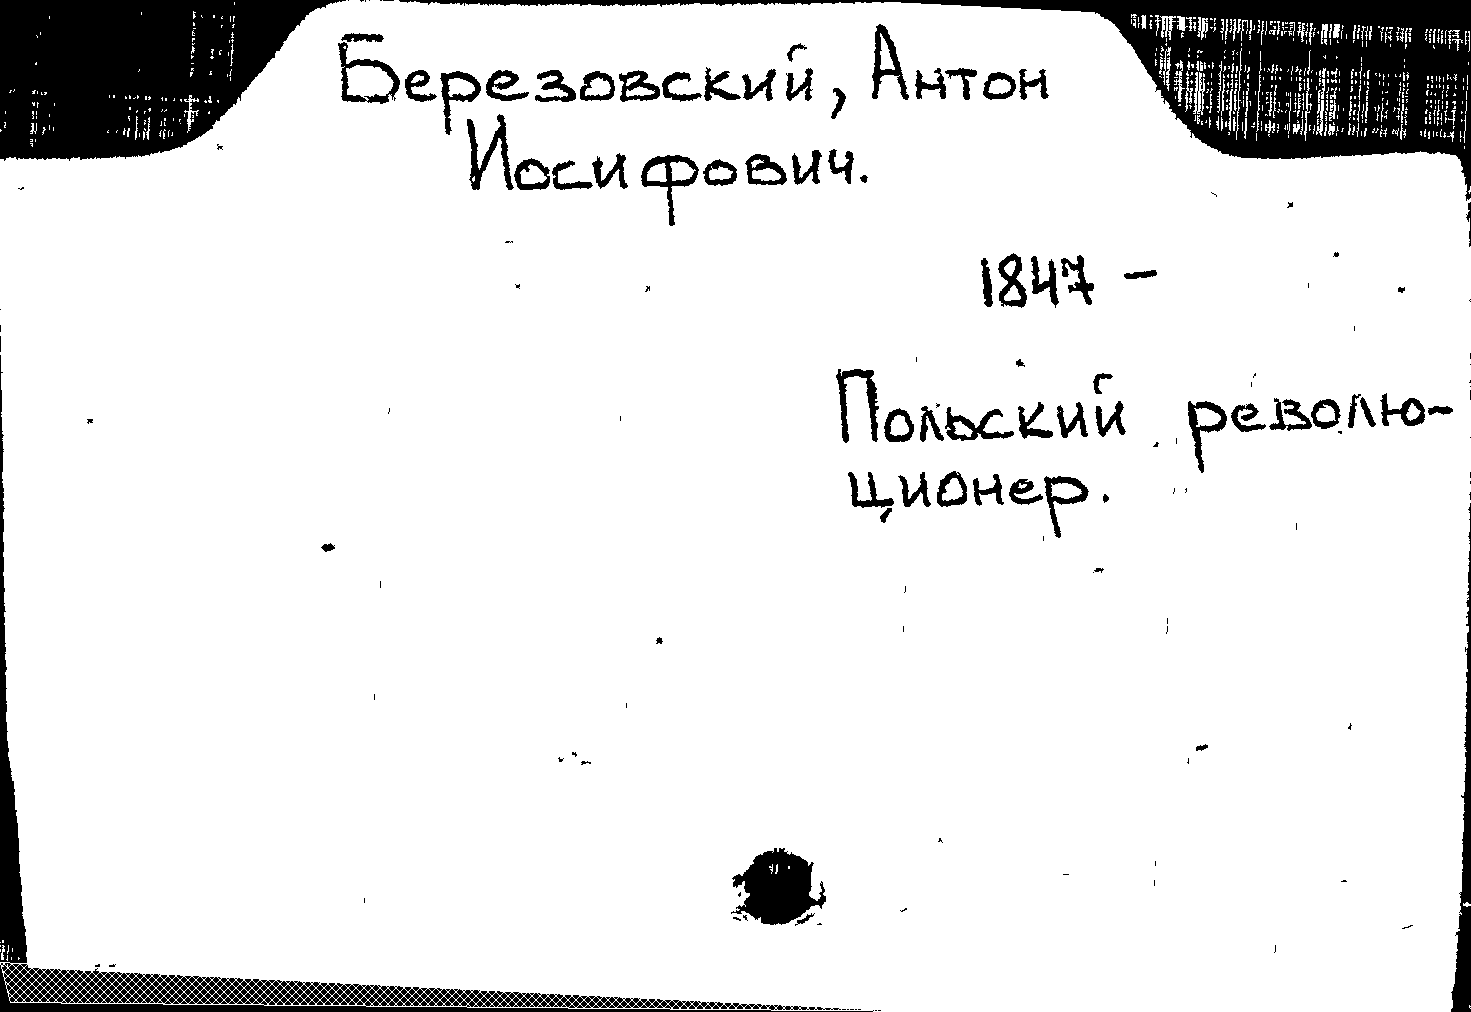 Березовский, Антон
Иосифович.
1847 –
Польский револю-
ционер.